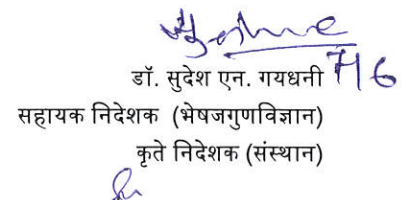 डॉ. सुदेश एन. गयधनी 7/6
सहायक निदेशक (भेषजगुणविज्ञान)
कृते निदेशक (संस्थान)